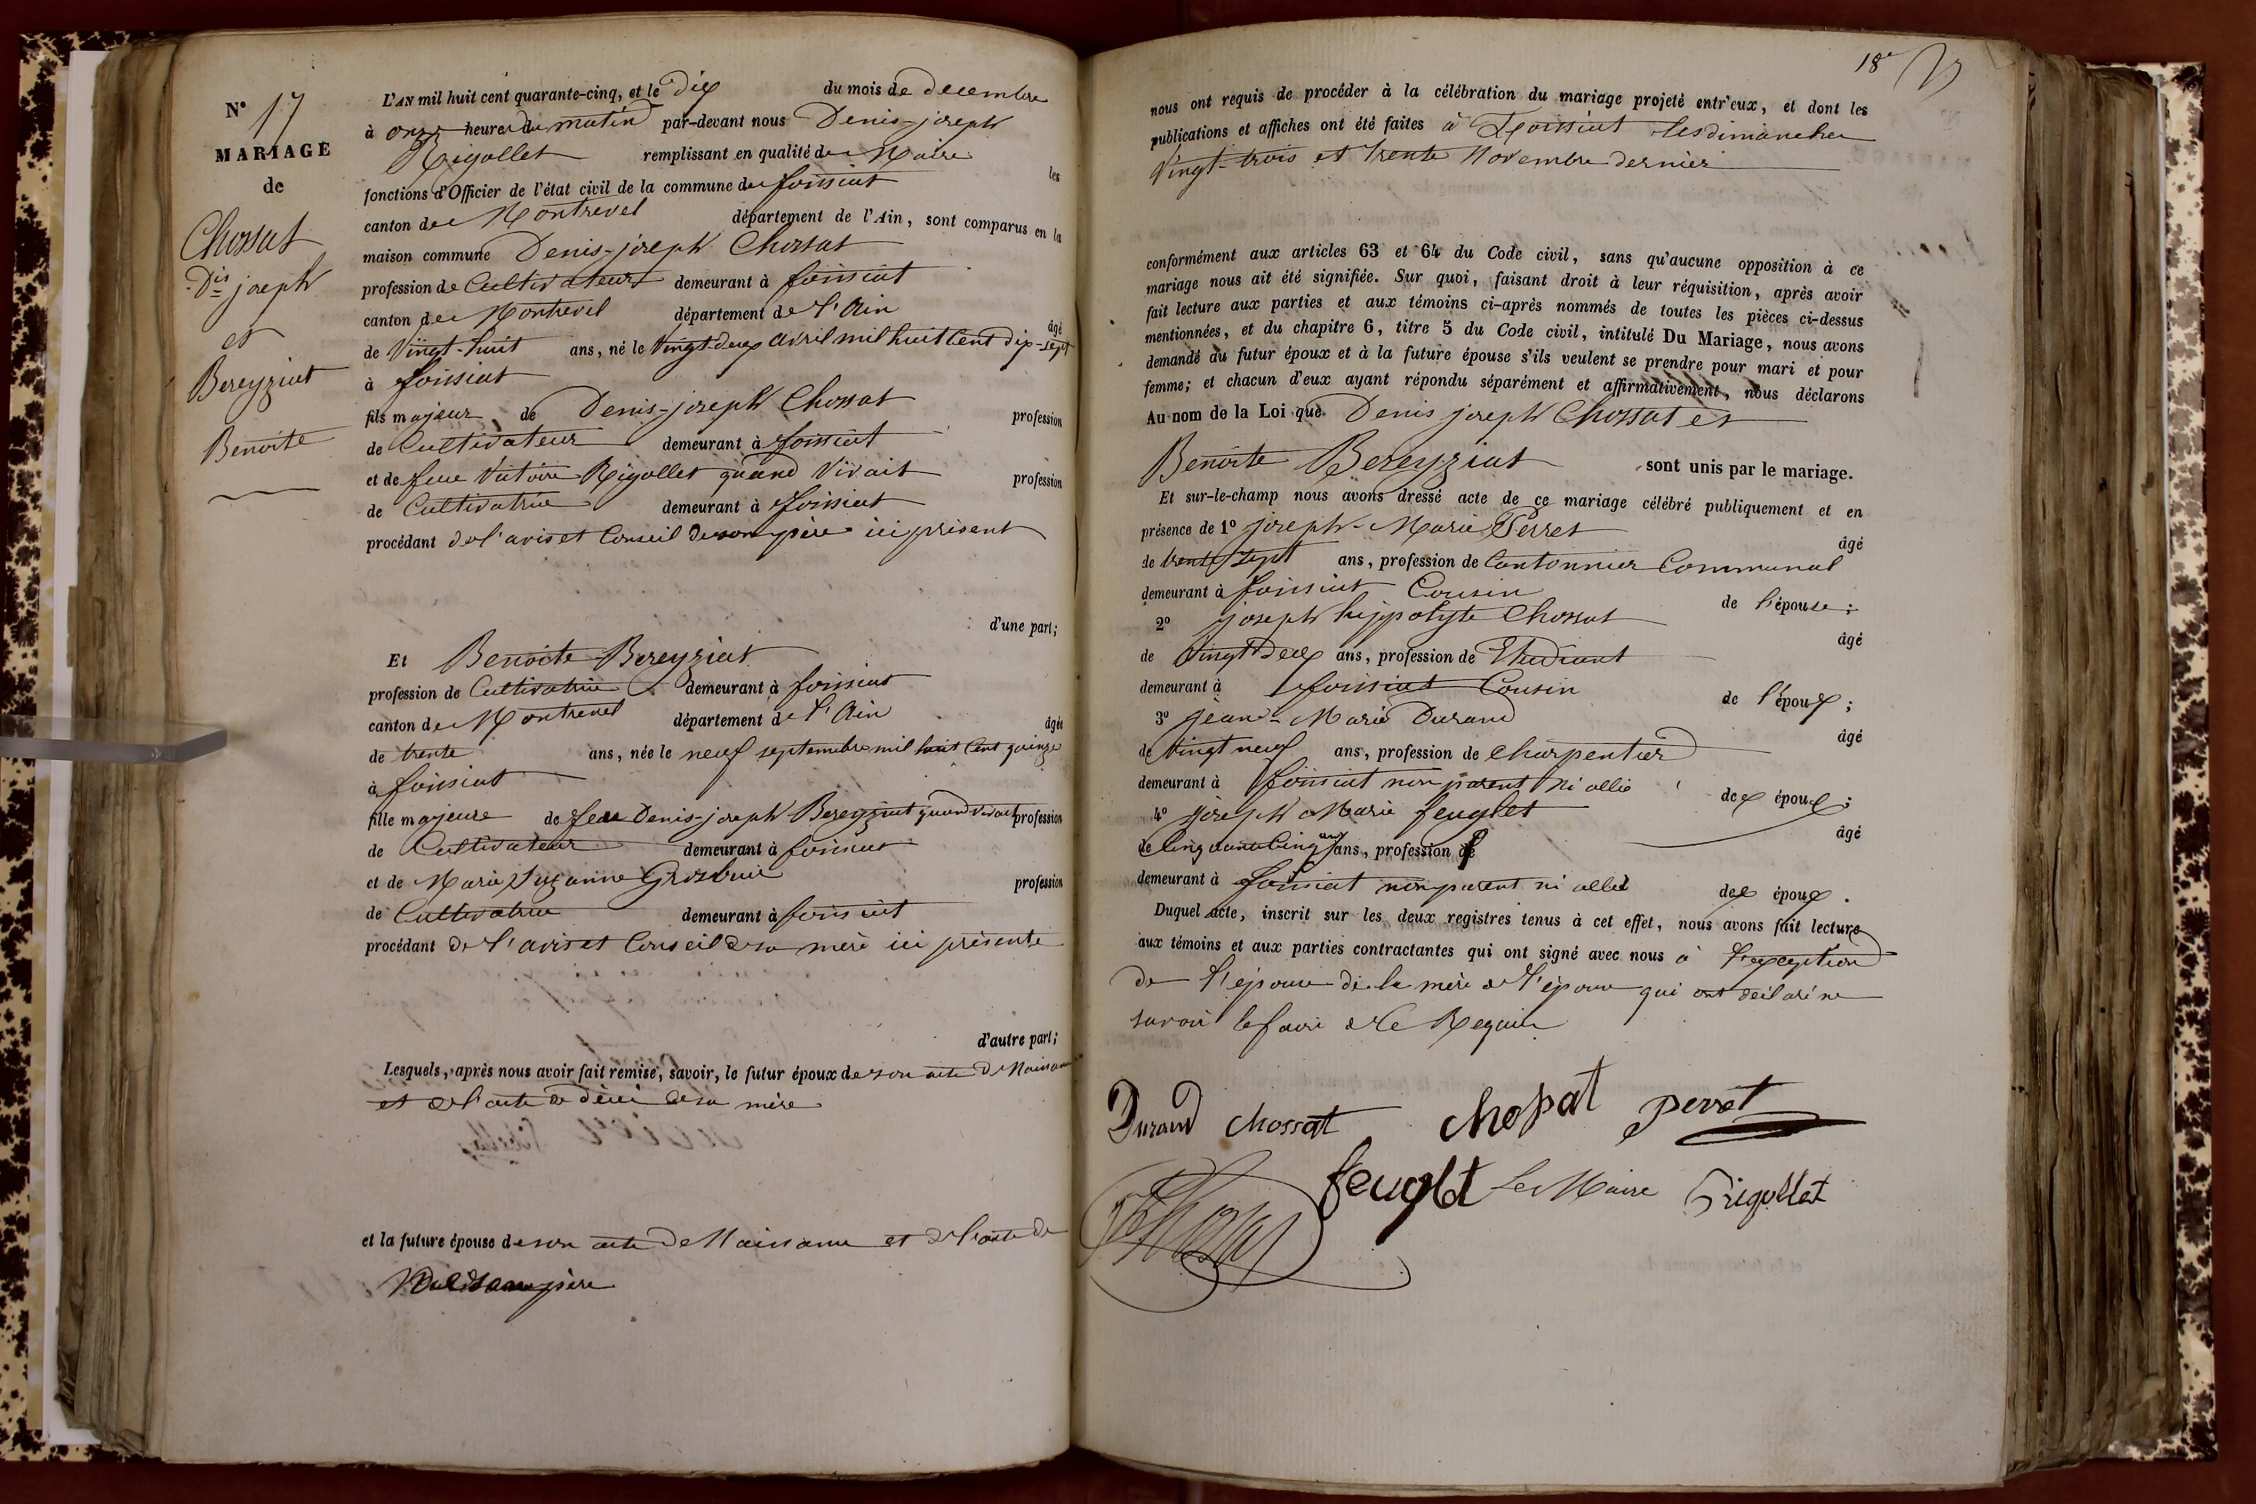 N° 17
MARIAGE
de
Chossat
Dis joseph
et
Bereyziat
Benoite
L'AN mil huit cent quarante-cinq, et le dix du mois de decembre
à onze heures du matin par-devant nous Denis-joseph
Rigollet remplissant en qualité de Maire les
fonctions d'Officier de l'état civil de la commune de foissiat
canton de Montrevel département de l'Ain, sont comparus en la
maison commune Denis-joseph Chossat
profession de Cultivateur demeurant à foissiat
canton de Montrevel département de l'Ain âgé
de Vingt-huit ans, né le Vingt-deux avril mil huit Cent dix-sept
à foissiat
fils majeur de Denis-joseph Chossat profession
de Cultivateur demeurant à foissiat
et de feue Victoire Rigollet quand Vivait profession
de Cultivatrice demeurant à foissiat
procédant de l'avis et Conseil de son père ici présent
d'une part;
Et Benoite Bereyziat
profession de Cultivatrice demeurant à foissiat
canton de Montrevel département de l'Ain âgée
de trente ans, née le neuf septembre mil huit Cent quinze
à foissiat
fille majeure de feu Denis-joseph Bereyziat quand vivait profession
de Cultivateur demeurant à foissiat
et de Marie Suzanne Grosbuis profession
de Cultivatrice demeurant à foissiat
procédant de l'avis et Conseil de sa mère ici présente
d'autre part;
Lesquels, après nous avoir fait remise, savoir, le futur époux de son acte de Naissance
et de l'acte de décès de sa mère
et la future épouse de son acte de Naissance et de l'acte de
père
18e
nous ont requis de procéder à la célébration du mariage projeté entr'eux, et dont les
publications et affiches ont été faites à Foissiat les dimanches
Vingt-trois et trente Novembre dernier
conformément aux articles 63 et 64 du Code civil, sans qu'aucune opposition à ce
mariage nous ait été signifiée. Sur quoi, faisant droit à leur réquisition, après avoir
fait lecture aux parties et aux témoins ci-après nommés de toutes les pièces ci-dessus
mentionnées, et du chapitre 6, titre 5 du Code civil, intitulé Du Mariage, nous avons
demandé au futur époux et à la future épouse s'ils veulent se prendre pour mari et pour
femme; et chacun d'eux ayant répondu séparément et affirmativement, nous déclarons
Au nom de la Loi que Denis joseph Chossat et
Benoite Bereyziat sont unis par le mariage.
Et sur-le-champ nous avons dressé acte de ce mariage célébré publiquement et en
présence de 1° joseph-Marie Perret âgé
de trente sept ans, profession de Cantonnier Communal
demeurant à foissiat Cousin de l'épouse;
2° joseph hippolyte Chossat âgé
de Vingt Deux ans, profession de Etudiant
demeurant à foissiat Cousin de l'époux;
3° jean-Marie Durand âgé
de Vingt neuf ans, profession de Charpentier
demeurant à foissiat non parent ni allié des époux;
4° joseph Marie feuglet âgé
de Cinquante Cinq ans, profession de
demeurant à foissiat non parent ni allié des époux.
Duquel acte, inscrit sur les deux registres tenus à cet effet, nous avons fait lecture
aux témoins et aux parties contractantes qui ont signé avec nous à l'exception
de l'épouse de la mère de l'épouse qui ont déclaré ne
savoir le faire de Ce Requis
Durand Chossat Chossat perret
feuglet Le Maire Rigollet